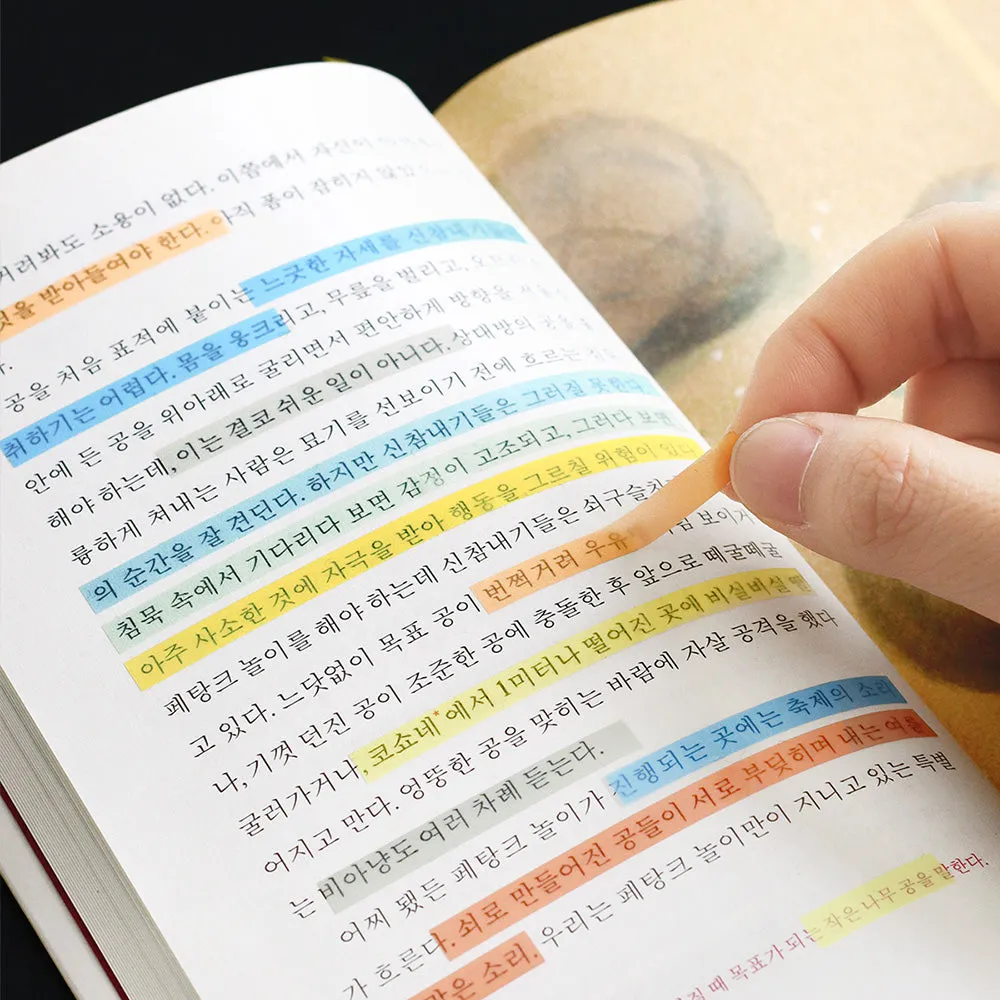 거려봐도 소용이 없다. 이쯤에서 자신이
것을 받아들여야 한다. 아직 폼이 잡히지 않았
공을 처음 표적에 붙이는 느긋한 자세를 신참내기들이
취하기는 어렵다. 몸을 웅크리고, 무릎을 벌리고,
안에 든 공을 위아래로 굴리면서 편안하게 방향을
해야 하는데, 이는 결코 쉬운 일이 아니다. 상대방의 공을
륭하게 쳐내는 사람은 묘기를 선보이기 전에 흐르는
의 순간을 잘 견딘다. 하지만 신참내기들은 그러질 못한다.
침묵 속에서 기다리다 보면 감정이 고조되고, 그러다 보면
아주 사소한 것에 자극을 받아 행동을 그르칠 위험이 있다.
페탕크 놀이를 해야 하는데 신참내기들은 쇠구슬치기
고 있다. 느닷없이 목표 공이 번쩍거려 우유 보이거
나, 기껏 던진 공이 조준한 공에 충돌한 후 앞으로 떼굴떼굴
굴러가거나, 코쇼네*에서 1미터나 떨어진 곳에 비실비실
어지고 만다. 엉뚱한 공을 맞히는 바람에 자살 공격을 했다
는 비아냥도 여러 차례 듣는다.
어찌 됐든 페탕크 놀이가 진행되는 곳에는 축제의 소리
가 흐른다. 쇠로 만들어진 공들이 서로 부딪히며 내는 여름
같은 소리. 우리는 페탕크 놀이만이 지니고 있는 특별
때 목표가 되는 작은 나무 공을 말한다.